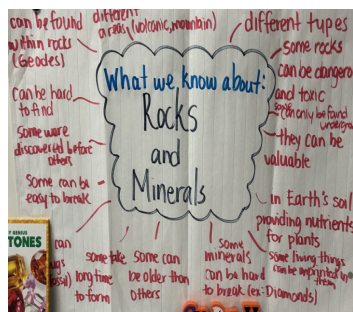 What we know about:
Rocks
and
Minerals
can be found
within rocks
(Geodes)
different
areas (volcanic, mountain)
different types
some rocks
can be dangero
and toxic
some can only be found
they can be
valuable
in Earth's soil
providing nutrients
for plants
some living things
can be imprinted in
them
some
minerals
can be hard
to break (ex: Diamonds)
some can
be older than
others
some take
long time
to form
can
Some can be
easy to break
some were
discovered before
others
Can be hard
to find
GENIUS
TONES